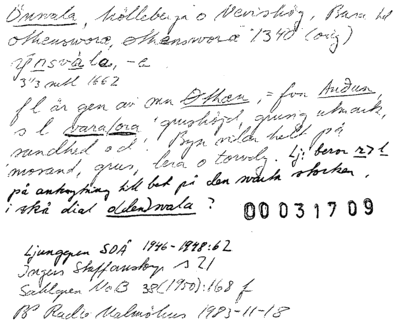 Onvala, Mölleberga o Nevishög, Bara hd
othensworæ, othensworæ 1340 (orig)
ÿnsvåla, -a
3 1/3 mtl 1662
fl är gen av mn Othæn, = fvn Auðun,
s l vara/ora 'grushöjd, grusig utmark,
sandhed o d'. Byn vilar helt på
morand, grus, lera o torvdy. Lj: beror r > l
på anknytning till bet på den svarta storken,
i skå dial odden)wala ?
00031709
Ljunggren SOÅ 1946-1948:62
Ingers Staffanstorp s 21
Sahlgren NoB 38 (1950):168 f
BP Radio Malmöhus 1983-11-18